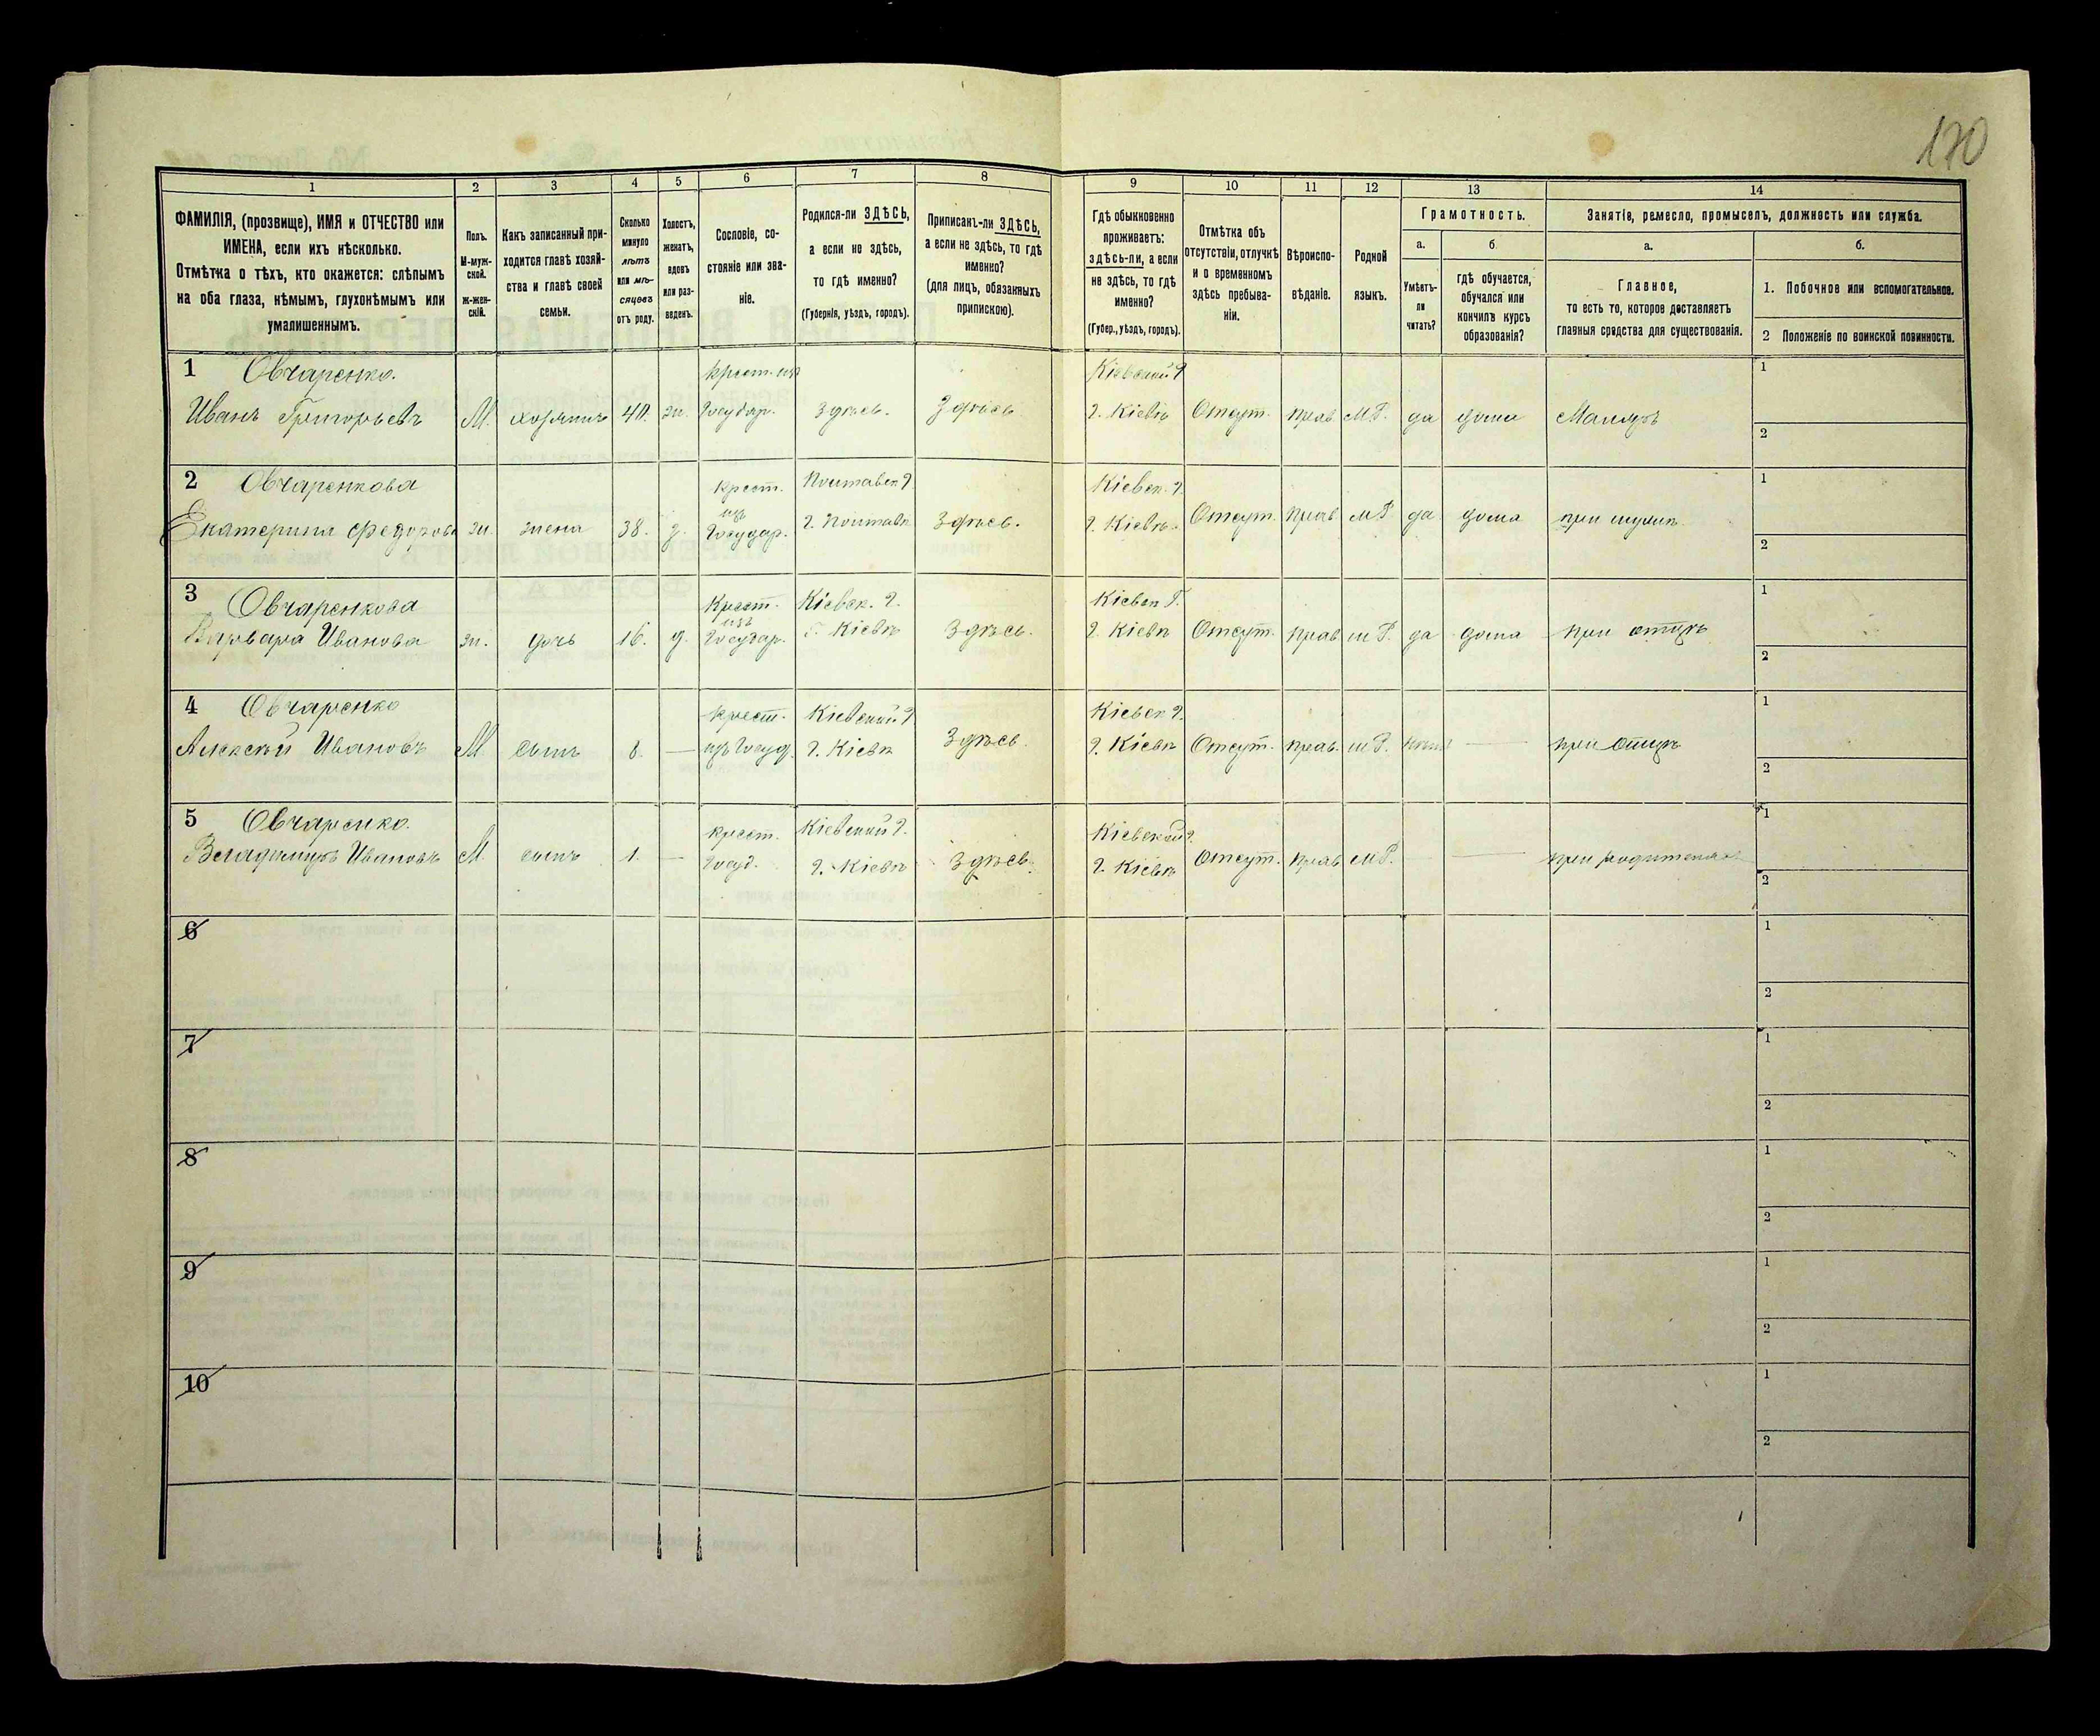 170
1 2 3 4 5 6 7 8 9 10 11 12 13 14
ФАМИЛІЯ, (прозвище), ИМЯ и ОТЧЕСТВО или
ИМЕНА, если ихъ нѣсколько.
Отмѣтка о тѣхъ, кто окажется: слѣпымъ
на оба глаза, нѣмымъ, глухонѣмымъ или
умалишеннымъ.
Полъ.
М-муж-
ской.
ж-жен-
скій.
Какъ записанный при-
ходится главѣ хозяй-
ства и главѣ своей
семьи.
Сколько
минуло
лѣтъ
или мѣ-
сяцевъ
отъ роду.
Холостъ,
женатъ,
вдовъ
или раз-
веденъ.
Сословіе, со-
стояніе или зва-
ніе.
Родился-ли ЗДѢСЬ,
а если не здѣсь,
то гдѣ именно?
(Губернія, уѣздъ, городъ).
Приписанъ-ли ЗДѢСЬ,
а если не здѣсь, то гдѣ
именно?
(для лицъ, обязанныхъ
припискою).
Гдѣ обыкновенно
проживаетъ:
здѣсь-ли, а если
не здѣсь, то гдѣ
именно?
(Губер., уѣздъ, городъ).
Отмѣтка объ
отсутствіи, отлучкѣ
и о временномъ
здѣсь пребыва-
ніи.
Вѣроиспо-
вѣданіе.
Родной
языкъ.
Грамотность.
а.
Умѣетъ-
ли
читать?
б.
гдѣ обучается,
обучался или
кончилъ курсъ
образованія?
Занятіе, ремесло, промыселъ, должность или служба.
а.
Главное,
то есть то, которое доставляетъ
главныя средства для существованія.
б.
1. Побочное или вспомогательное.
2 Положеніе по воинской повинности.
1 Овчаренко. крест. изъ Кіевской г. 1
Иванъ Григорьевъ М. хозяинъ 40. ж. Государ. здѣсь. Здѣсь г. Кіевѣ Отсут. прав. М.Р. да дома Маляръ
2
2 Овчаренкова крест. Полтавск г. Кіевск. г. 1
изъ
Екатерина Федорова ж. жена 38. з. Государ. г. Полтавѣ Здѣсь. г. Кіевѣ. Отсут. Прав М.Р. да дома при мужѣ
2
3 Овчаренкова Крест. Кіевск. г. Кіевск Г. 1
изъ
Варвара Иванова ж. дочь 16. д. Государ. г. Кіевѣ Здѣсь. г. Кіевѣ Отсут. прав м Р. да дома при отцѣ
2
4 Овчаренко крест. Кіевской г. Кіевск г. 1
Алексѣй Ивановъ М. сынъ 8. — изъ Госуд. г. Кіевѣ Здѣсь. г. Кіевѣ Отсут. прав. м Р. — при отцѣ
2
5 Овчаренко. крест. Кіевской г. Кіевской г. 1
Владимиръ Ивановъ М. сынъ 1. — Госуд. г. Кіевѣ Здѣсь. г. Кіевѣ Отсут. прав М.Р. — при родителях
2
6 1
2
7 1
2
8 1
2
9 1
2
10 1
2